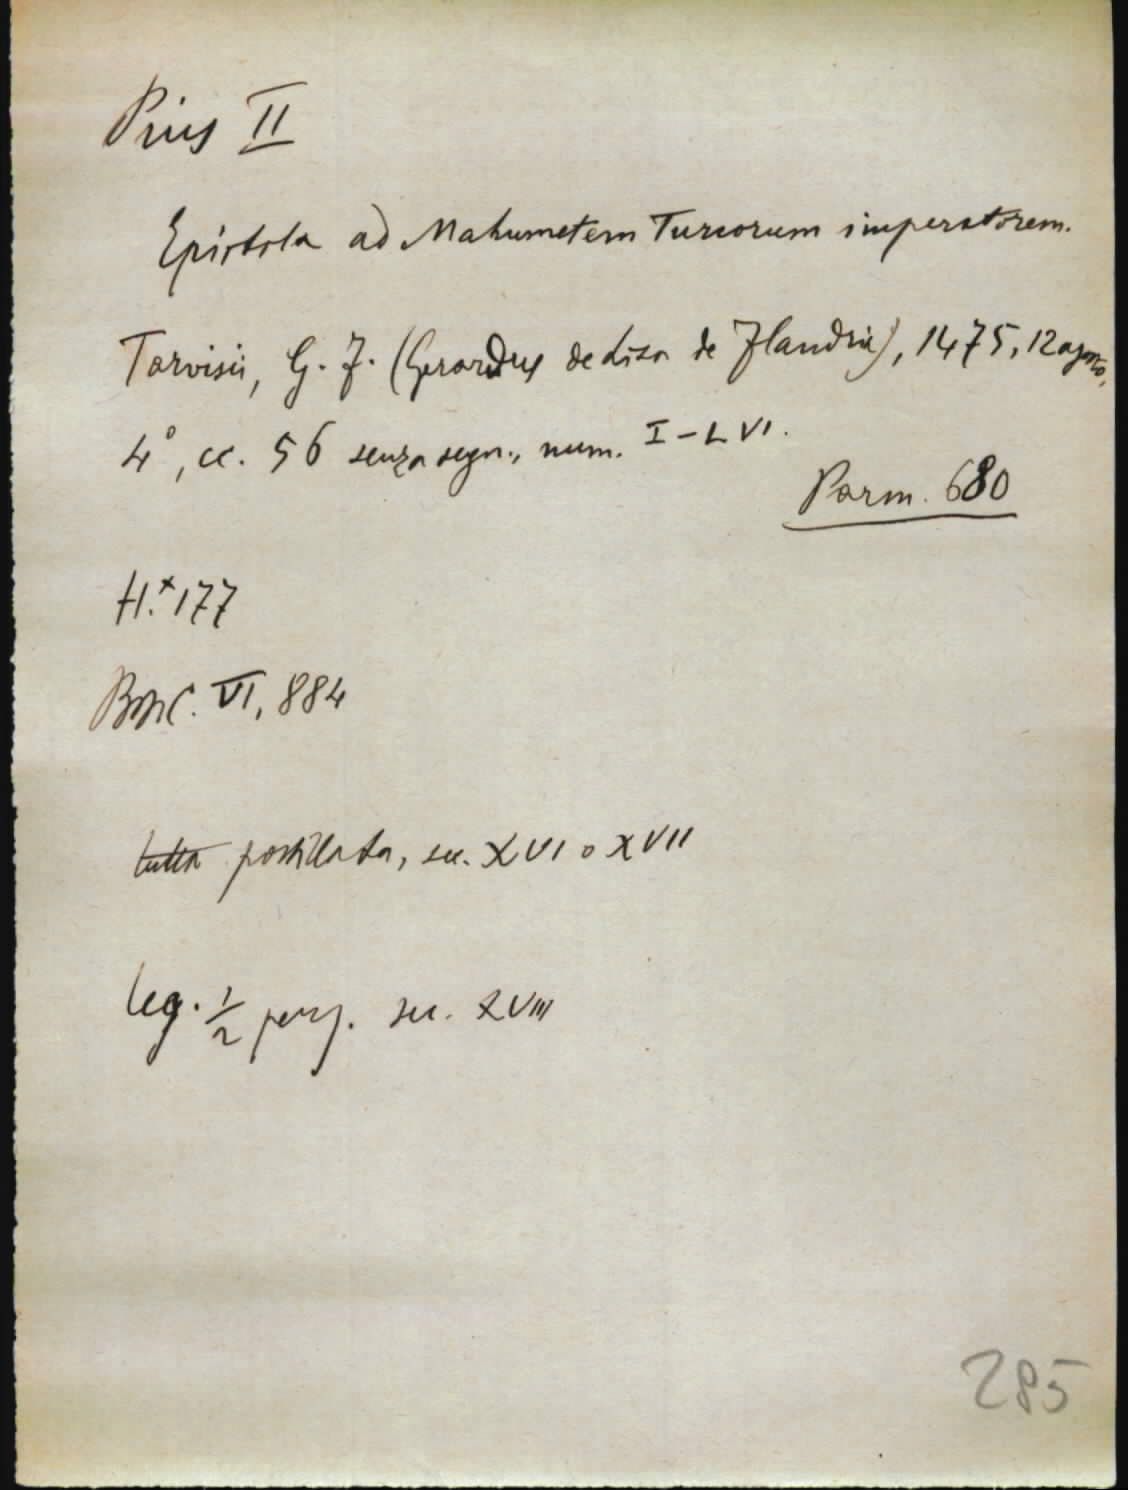 Pius II
Epistola ad Mahumetem Turcorum imperatorem.
Tarvisii, G. F. (Gerardus de Lisa de Flandria), 1475, 12 agosto,
4°, cc. 56 senza segn., num. I-LVI.
Parm. 680
H.* 177
BMC. VI, 884
tutta postillata, sec. XVI o XVII
leg. 1/2 perg. sec. XVIII
285